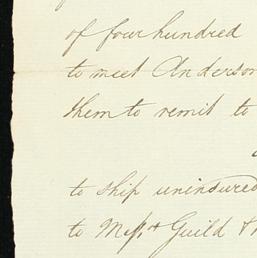 of four hundred
to meet Anderson
them to remit to
to ship uninsured
to Messrs Guild &